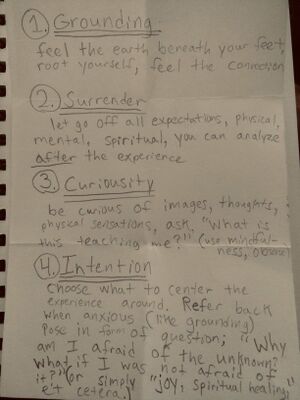 1. Grounding
feel the earth beneath your feet,
root yourself, feel the connection
2. Surrender
let go off all expectations, physical,
mental, spiritual, you can analyze
after the experience
3. Curiousity
be curious of images, thoughts,
physical sensations, ask "What is
this teaching me?" (use mindful-
ness, observe)
4. Intention
Choose what to center the
experience around. Refer back
when anxious (like grounding)
Pose in form of question; "Why
am I afraid of the unknown?
What if I was not afraid of
it?" or simply "joy, spiritual healing"
et cetera.)